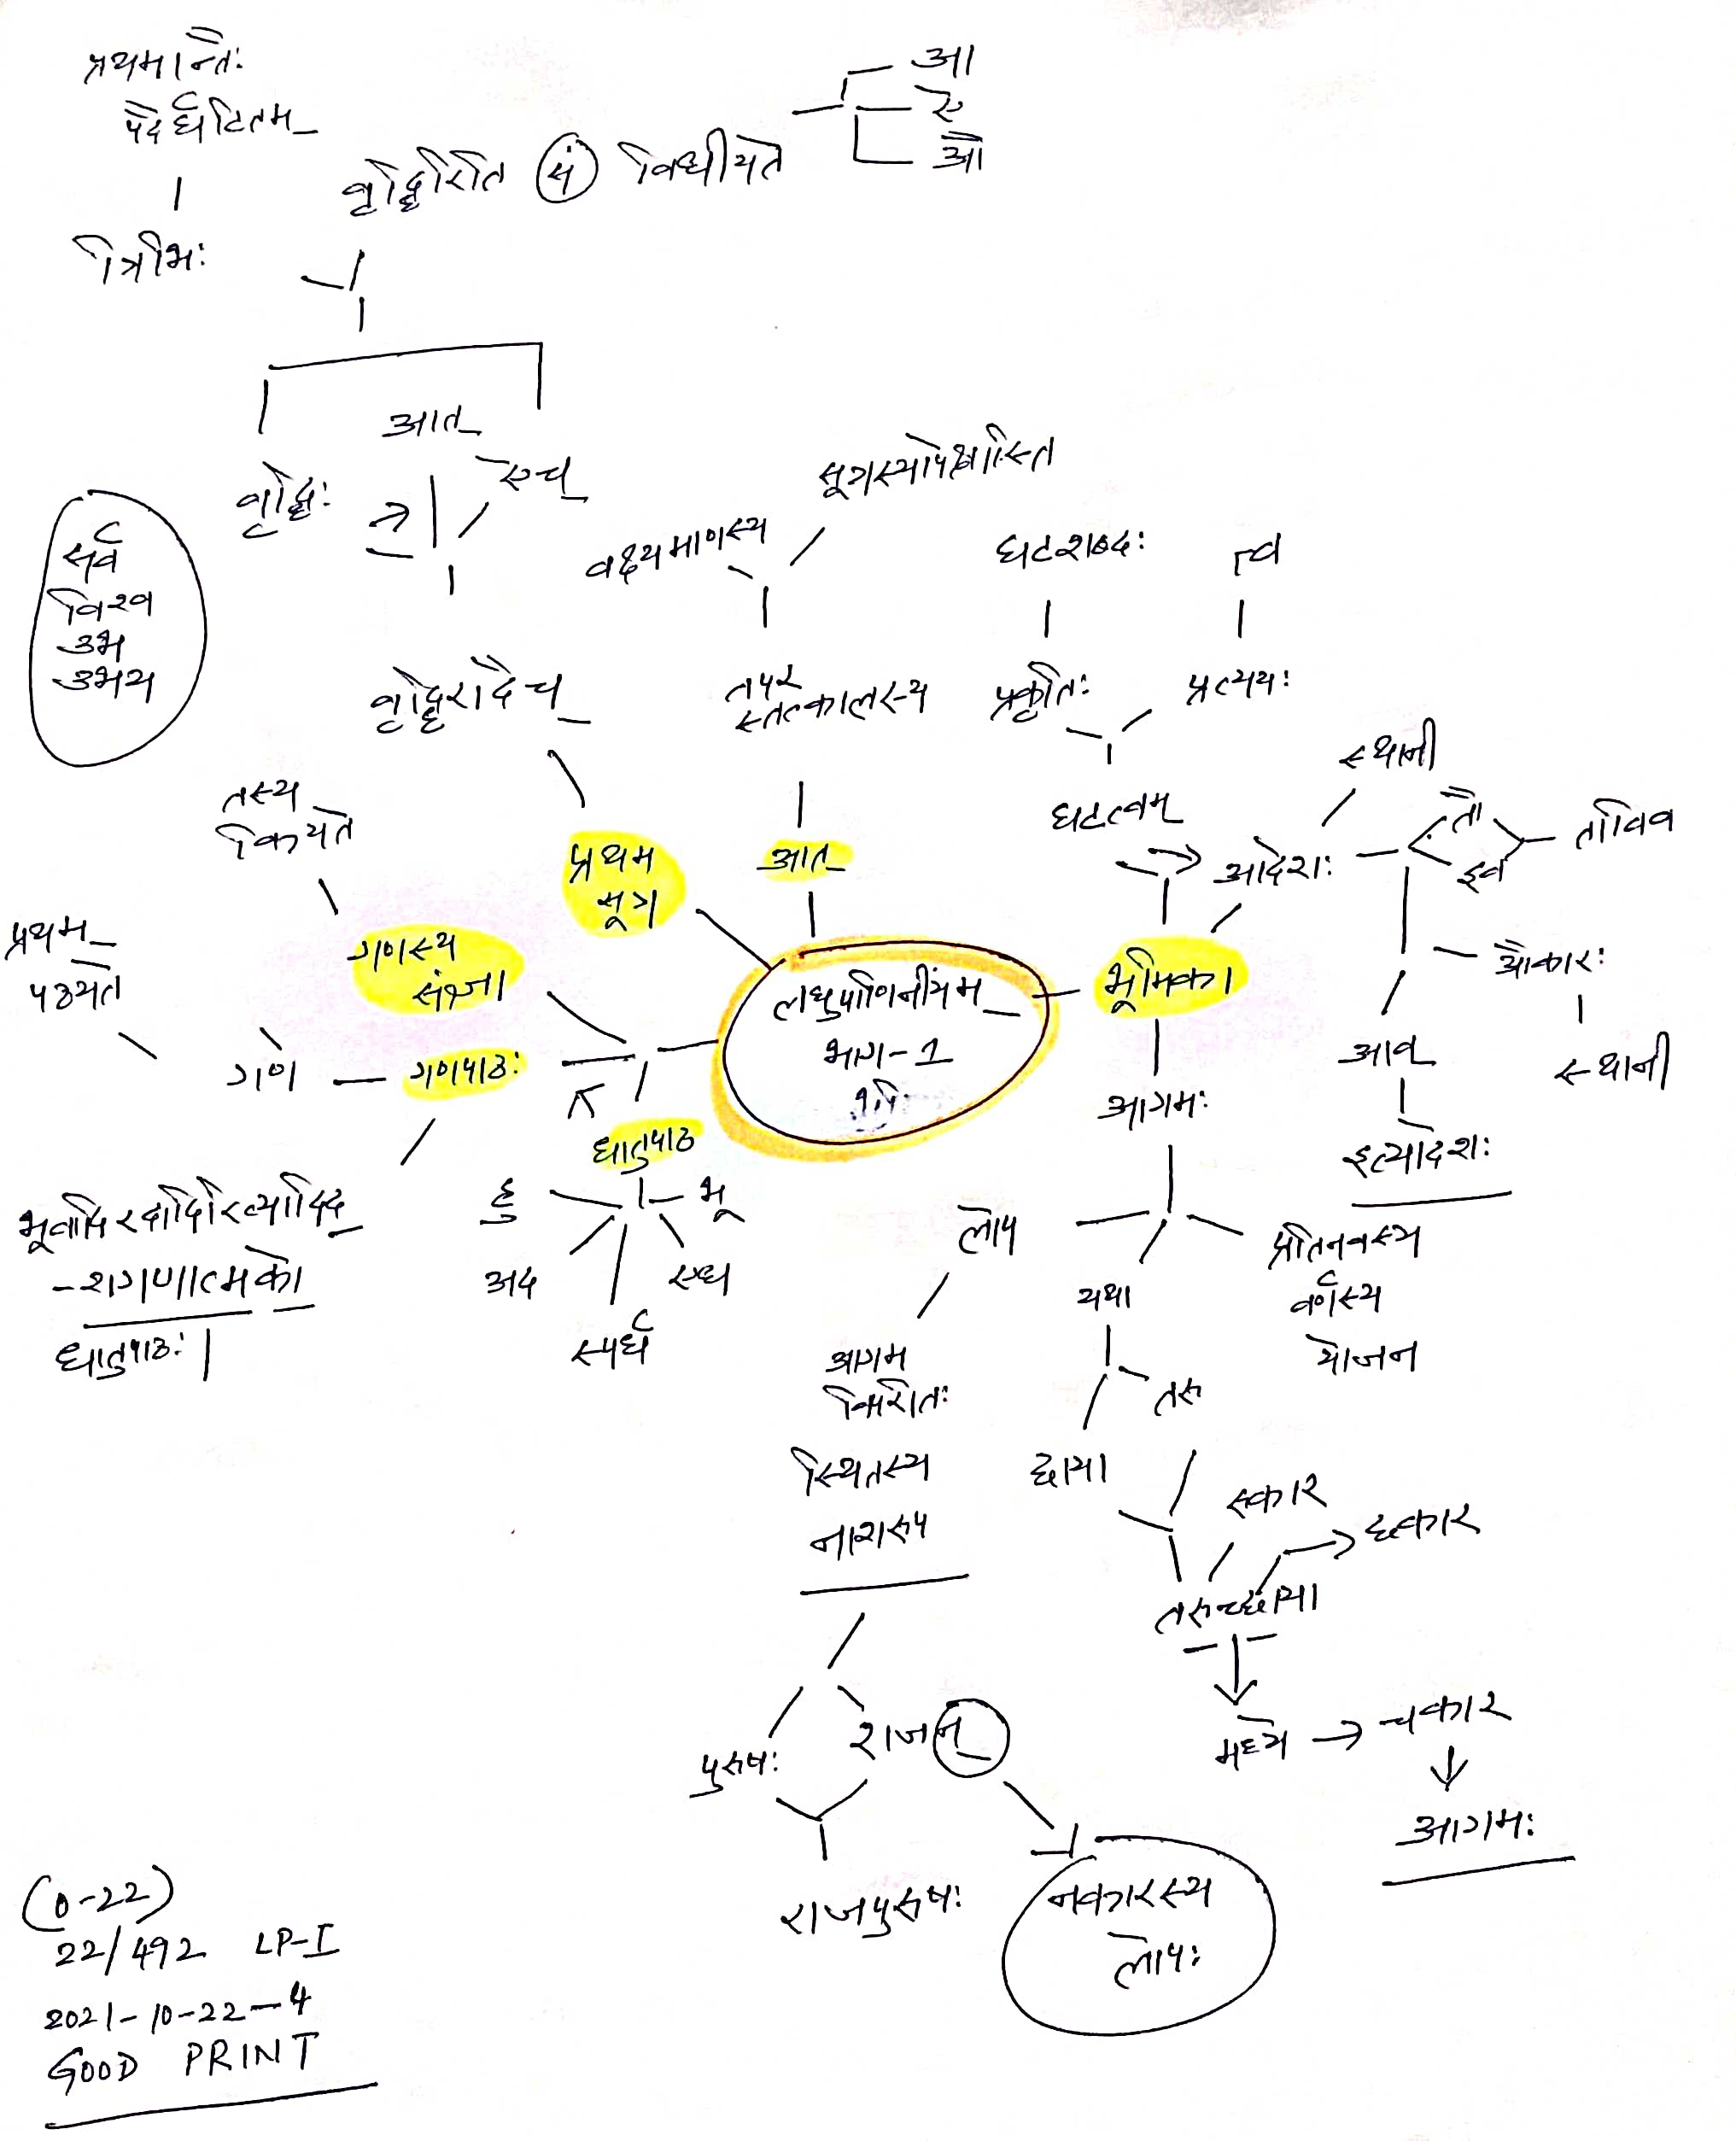 प्रथमान्तैः
पदैर्घटितम्
त्रिभिः
वृद्धिरिति सं विधीयते
आ
ऐ
औ
वृद्धिः
आत्
ऐच्
वृद्धिरादैच्
सर्व
विश्व
उभ
उभय
सूत्रस्यापेक्षास्ति
वक्ष्यमाणस्य
तपर
स्तत्कालस्य
आत्
घटशब्दः
त्व
प्रकृतिः
प्रत्ययः
घटत्वम्
प्रथम
सूत्र
तस्य
क्रियते
गणस्य
संज्ञा
प्रथम
पठ्यते
गणे
गणपाठः
धातुपाठ
हु
भू
अद
एध
स्पर्ध
भूवादिरदादिरित्यादिद
-शगणात्मको
धातुपाठः।
लघुपाणिनीयम्
भाग-1
भूमिका
आदेशः
स्थानी
तौ
इव
ताविव
औकारः
स्थानी
आव्
इत्यादेशः
आगमः
लोप
यथा
प्रतिनवस्य
वर्णस्य
योजन
तरु
छाया
रुकार
छकार
तरुच्छाया
मध्ये → चकार
आगमः
आगम
स्थितस्य
नाशरूप
पुरुषः
राजन्
राजपुरुषः
नकारस्य
लोपः
(0-22)
22/492 LP-I
2021-10-22-4
GOOD PRINT